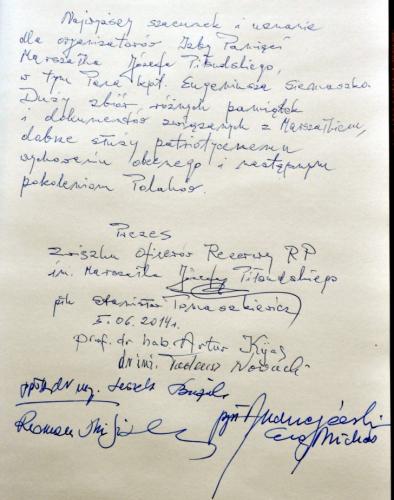 Najwyższy szacunek i uznanie
dla organizatorów Izby Pamięci
Marszałka Józefa Piłsudskiego,
w tym Pana kpt. Eugeniusza Siemaszko.
Duży zbiór, różnych pamiątek
i dokumentów związanych z Marszałkiem,
dobrze służy patriotycznemu
wychowaniu obecnego i następnym
pokoleniom Polaków.
Prezes
Związku Oficerów Rezerwy RP
im. Marszałka Józefa Piłsudskiego
płk Stanisław Tomaszkiewicz
06.2014r.
prof. dr hab. Artur Kijas
dr inż. Tadeusz Nowacki
Leszek
Roman